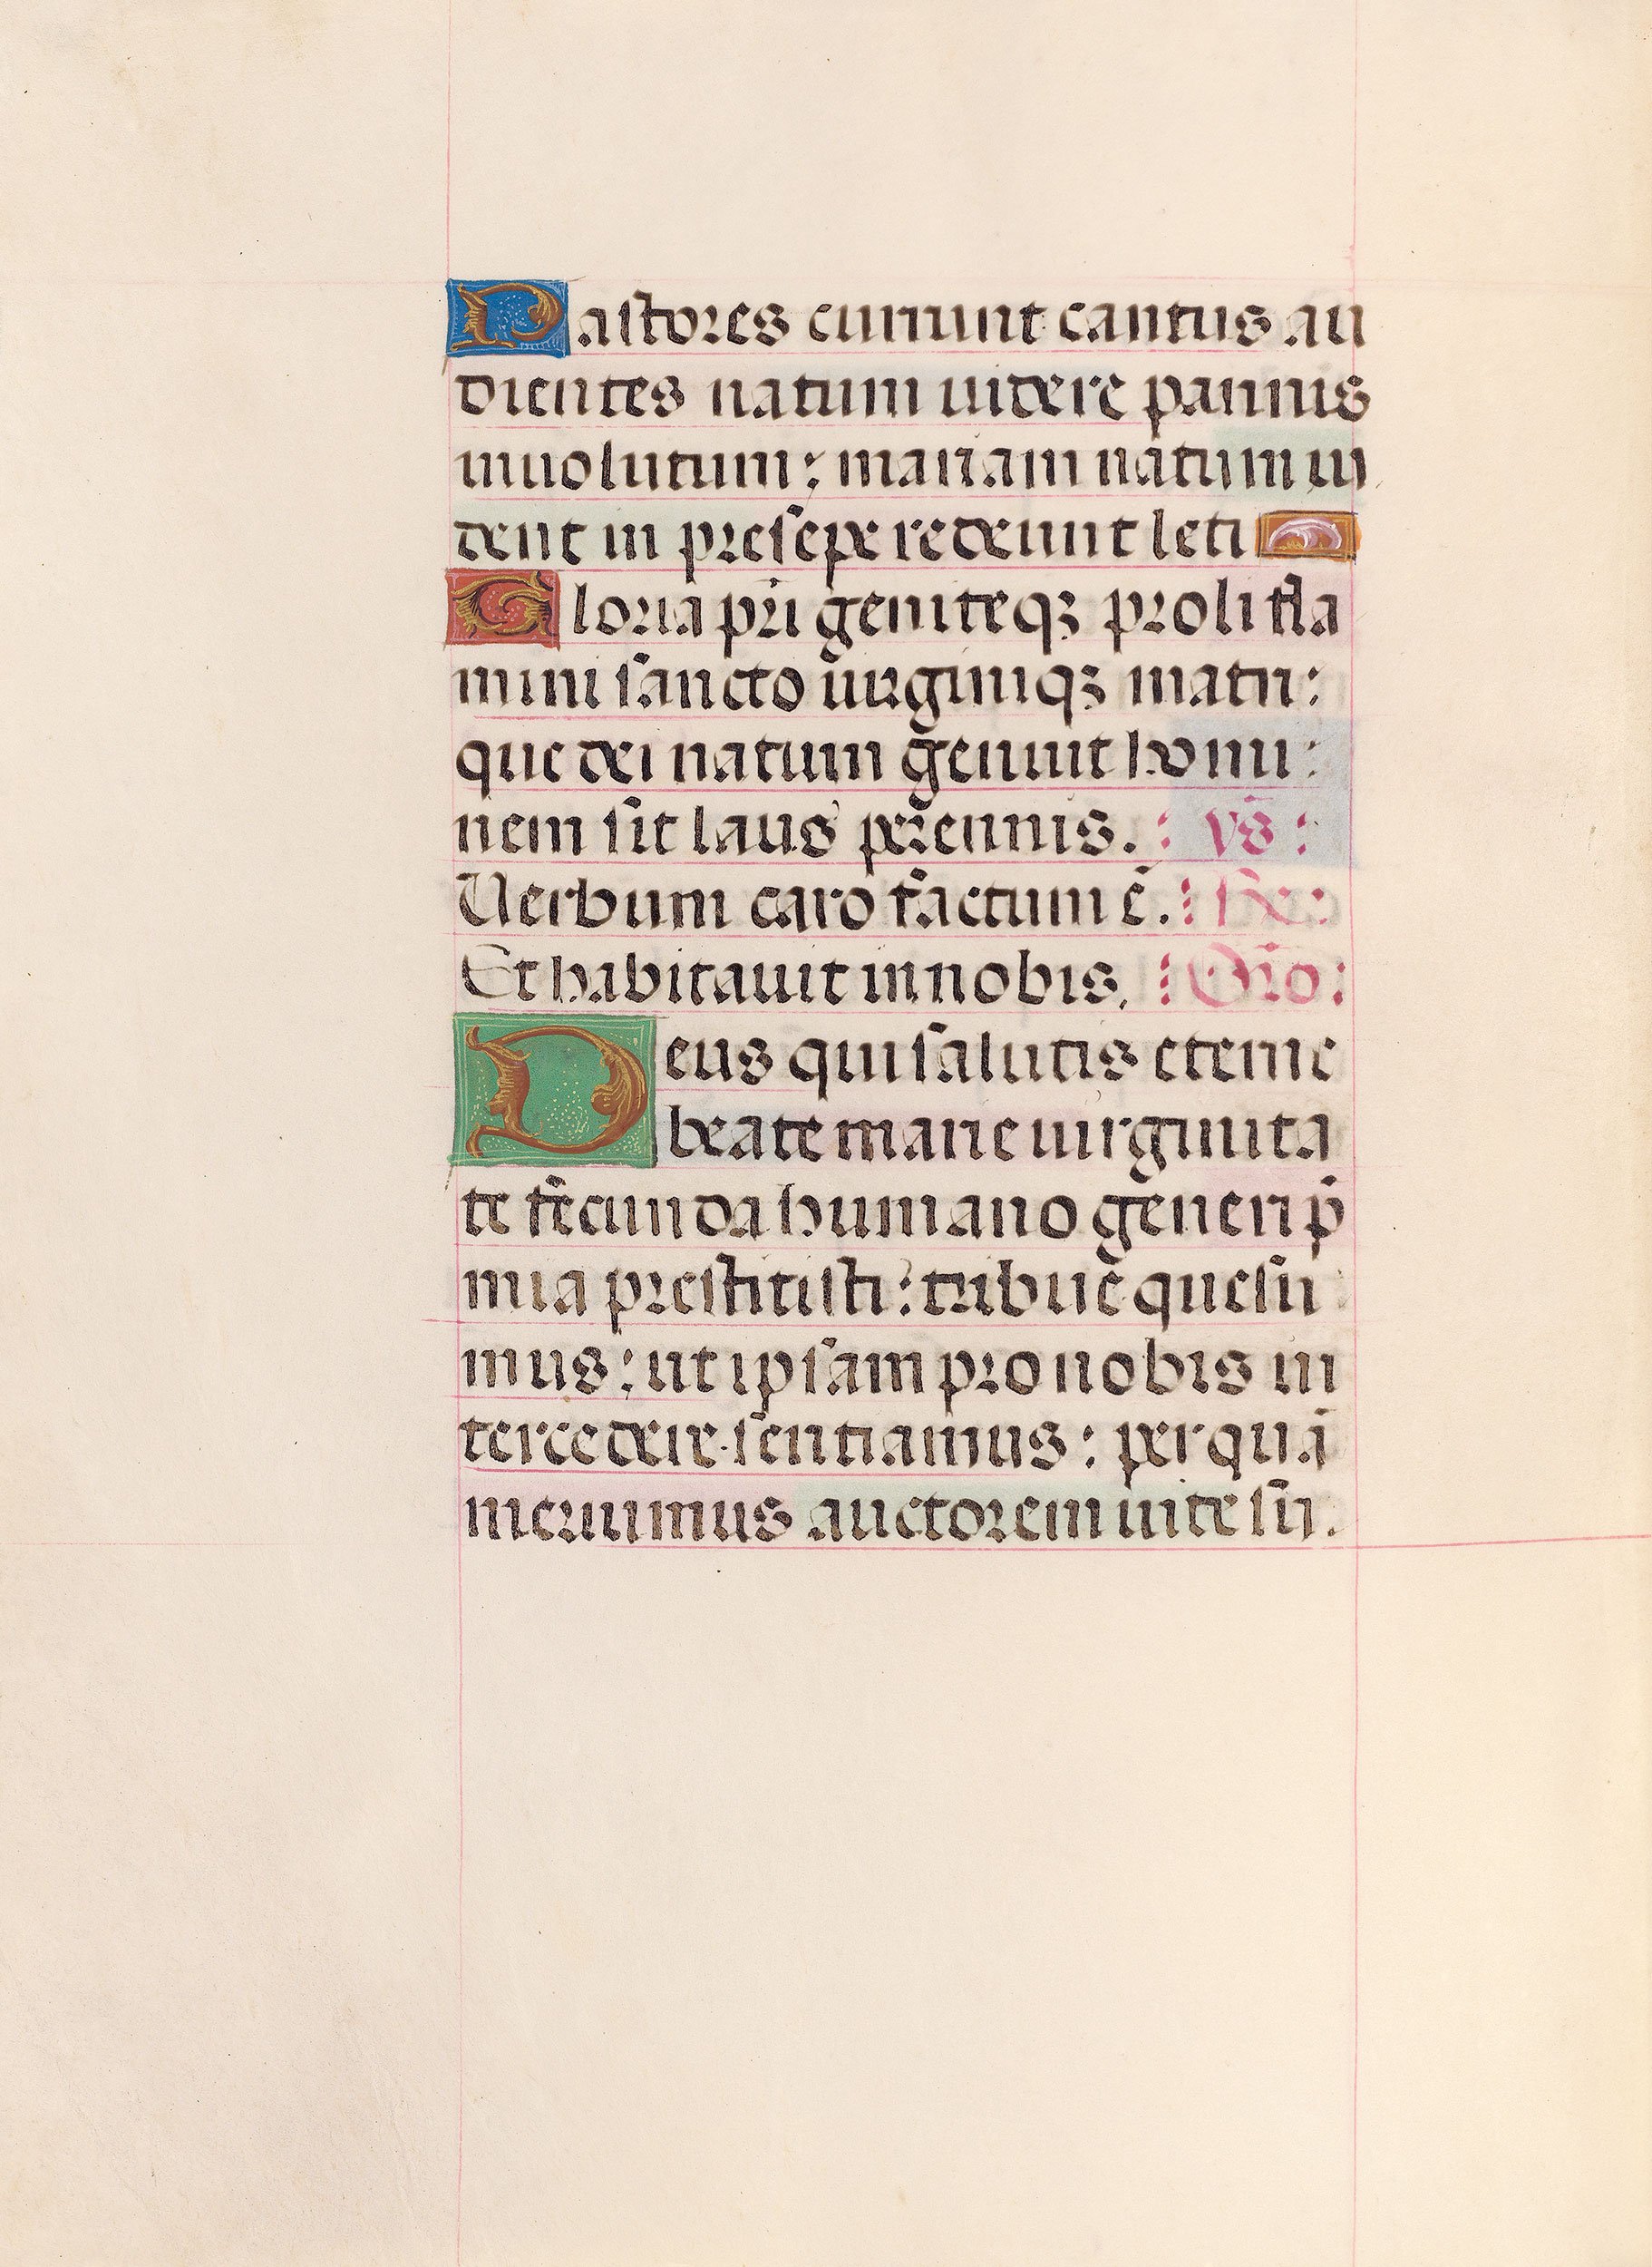 Pastores currunt cantus au
dientes natum uidere pannis
inuolutum: mariam natum ui
dent in presepe redeunt leti
Gloria pr̄i geniteqꝫ proli fla
mini sancto uirginiqꝫ matri:
que dei natum genuit homi:
nem sit laus perennis. : vs̄ :
Uerbum caro factum ē. : R̄ :
Et habitauit in nobis. : Or̄o :
Deus qui salutis eterne
beate marie uirginita
te fecunda humano generi p̄
mia prestitisti: tribue quesu
mus: ut ipsam pro nobis in
tercedere sentiamus: per quā
meruimus auctorem uite sus.